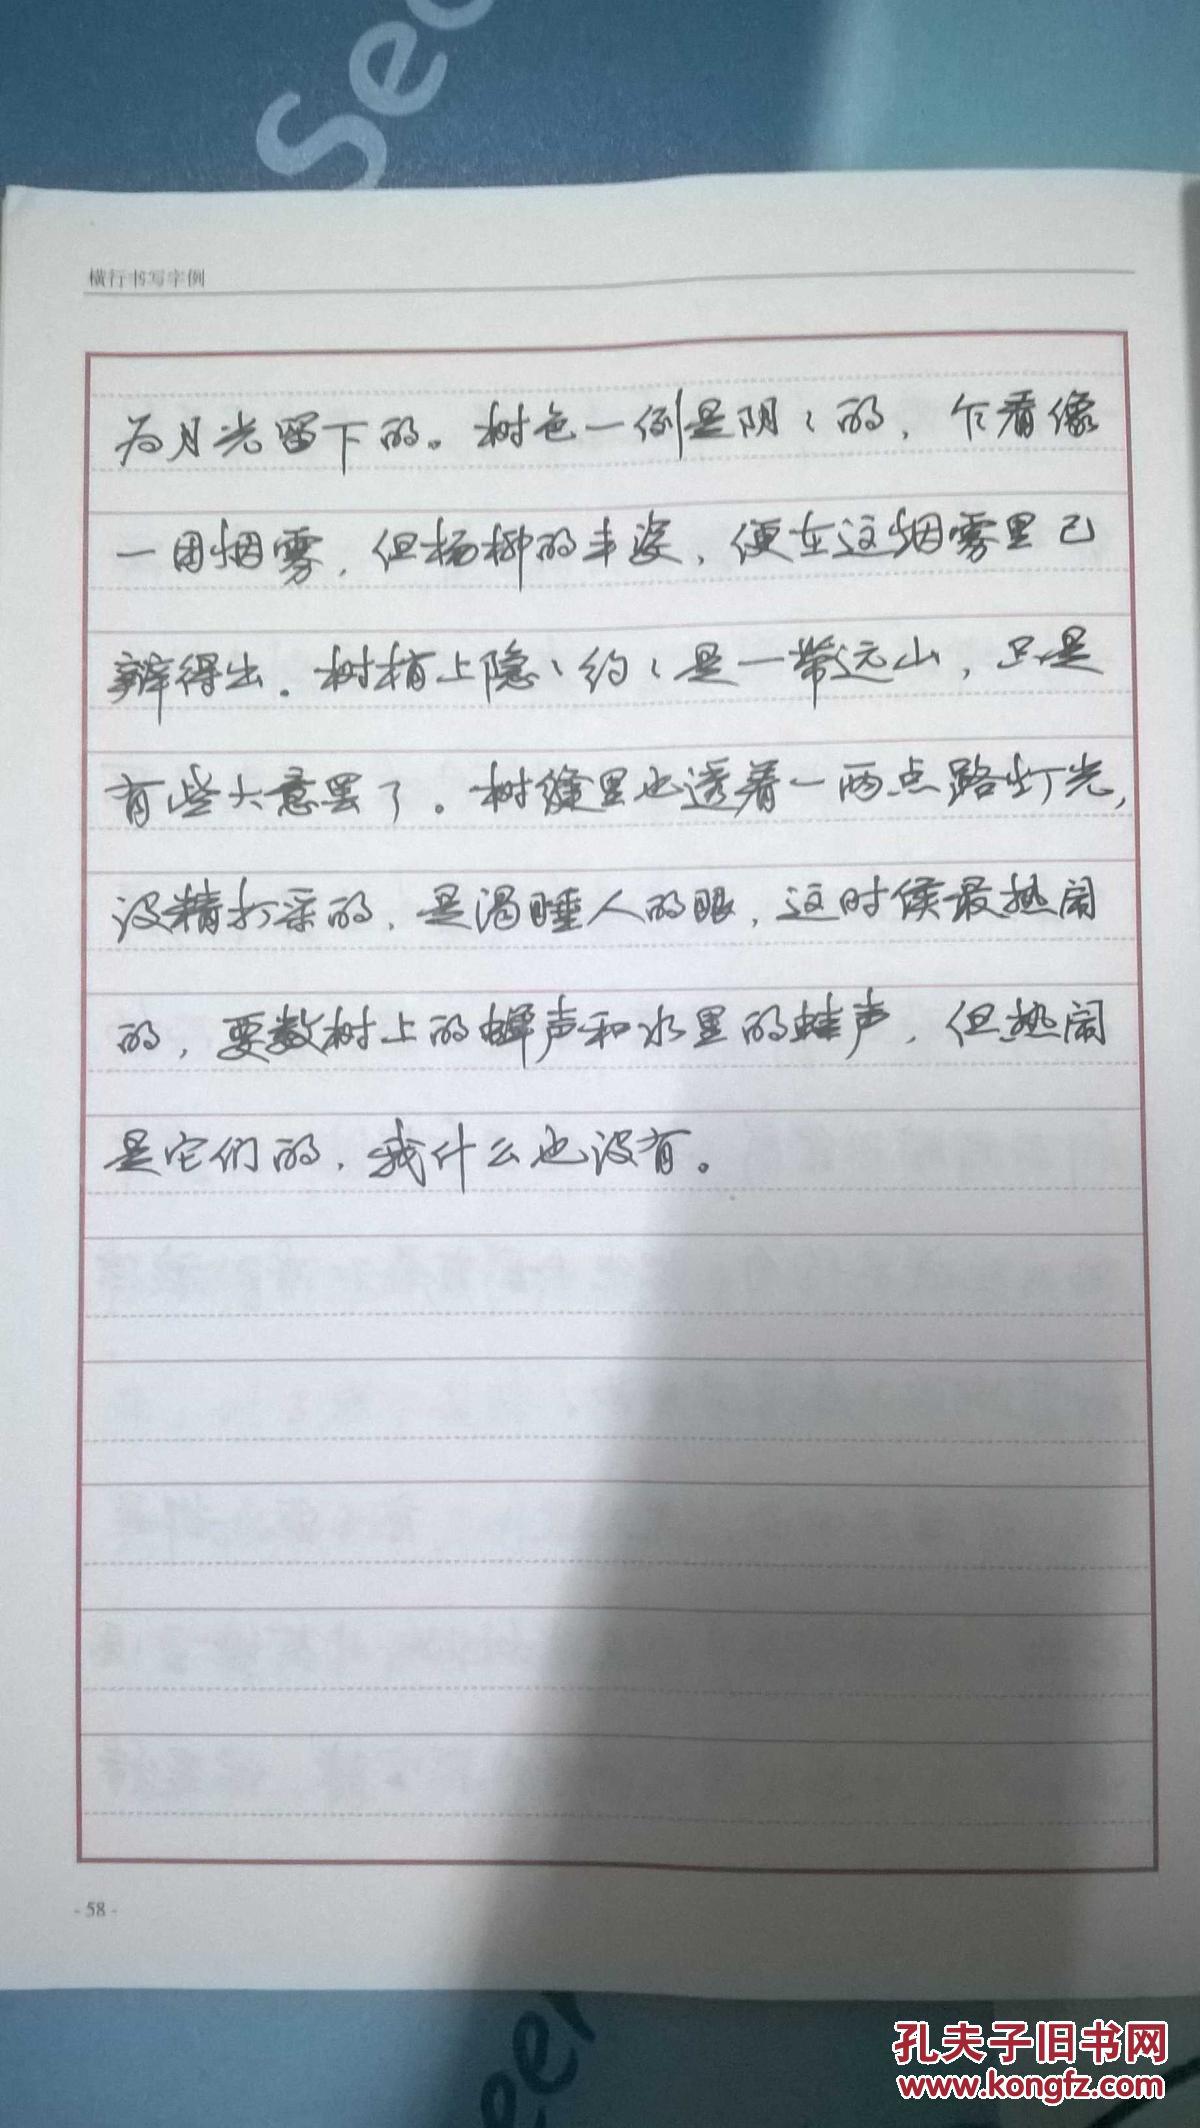 See
横行书写字例
为月光留下的。树色一例是阴〻的，乍看像
一团烟雾，但杨柳的丰姿，便在这烟雾里已
辨得出。树梢上隐〻约〻是一带远山，只是
有些大意罢了。树缝里也透着一两点路灯光，
没精打采的，是渴睡人的眼，这时候最热闹
的，要数树上的蝉声和水里的蛙声，但热闹
是它们的，我什么也没有。
- 58 -
孔夫子旧书网
www.kongfz.com